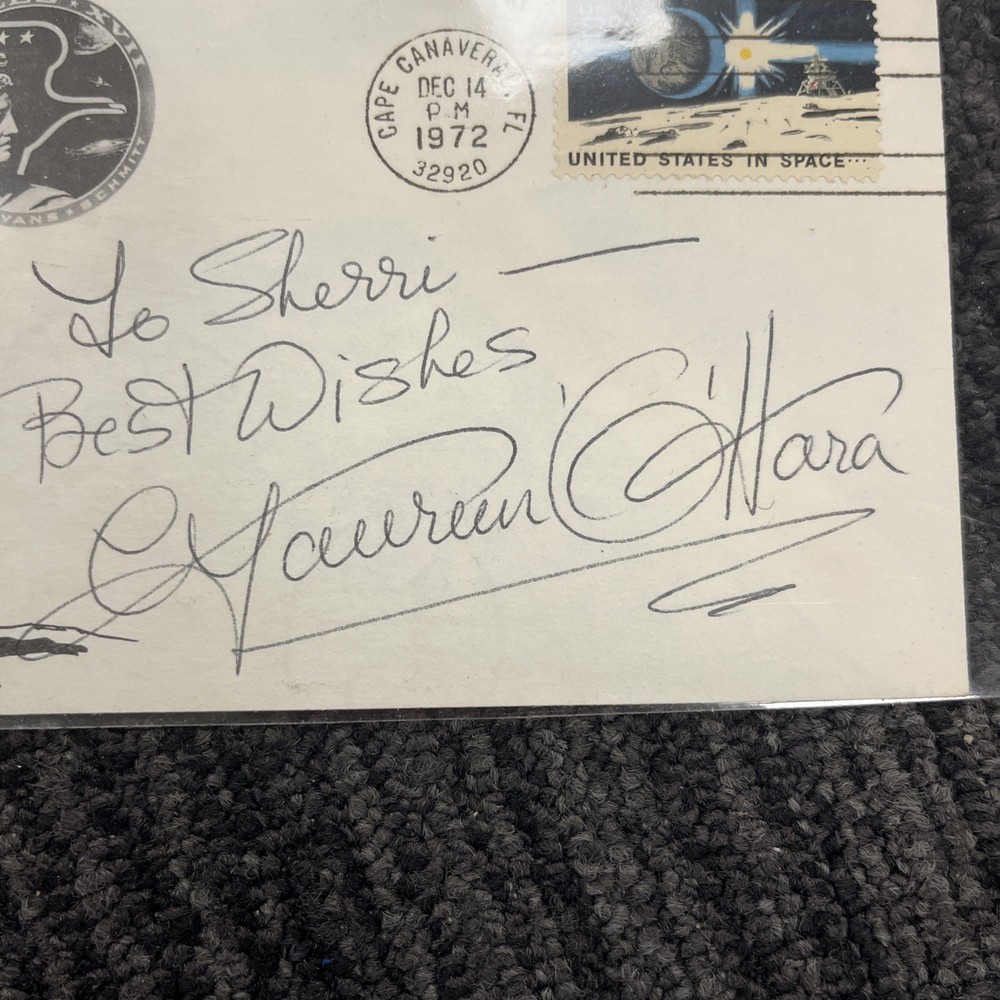 XVII
VANS ★ SCHMITT
CAPE CANAVERAL FL
DEC 14
PM
1972
32920
US
UNITED STATES IN SPACE...
To Sherri —
Best Wishes
Maureen O'Hara